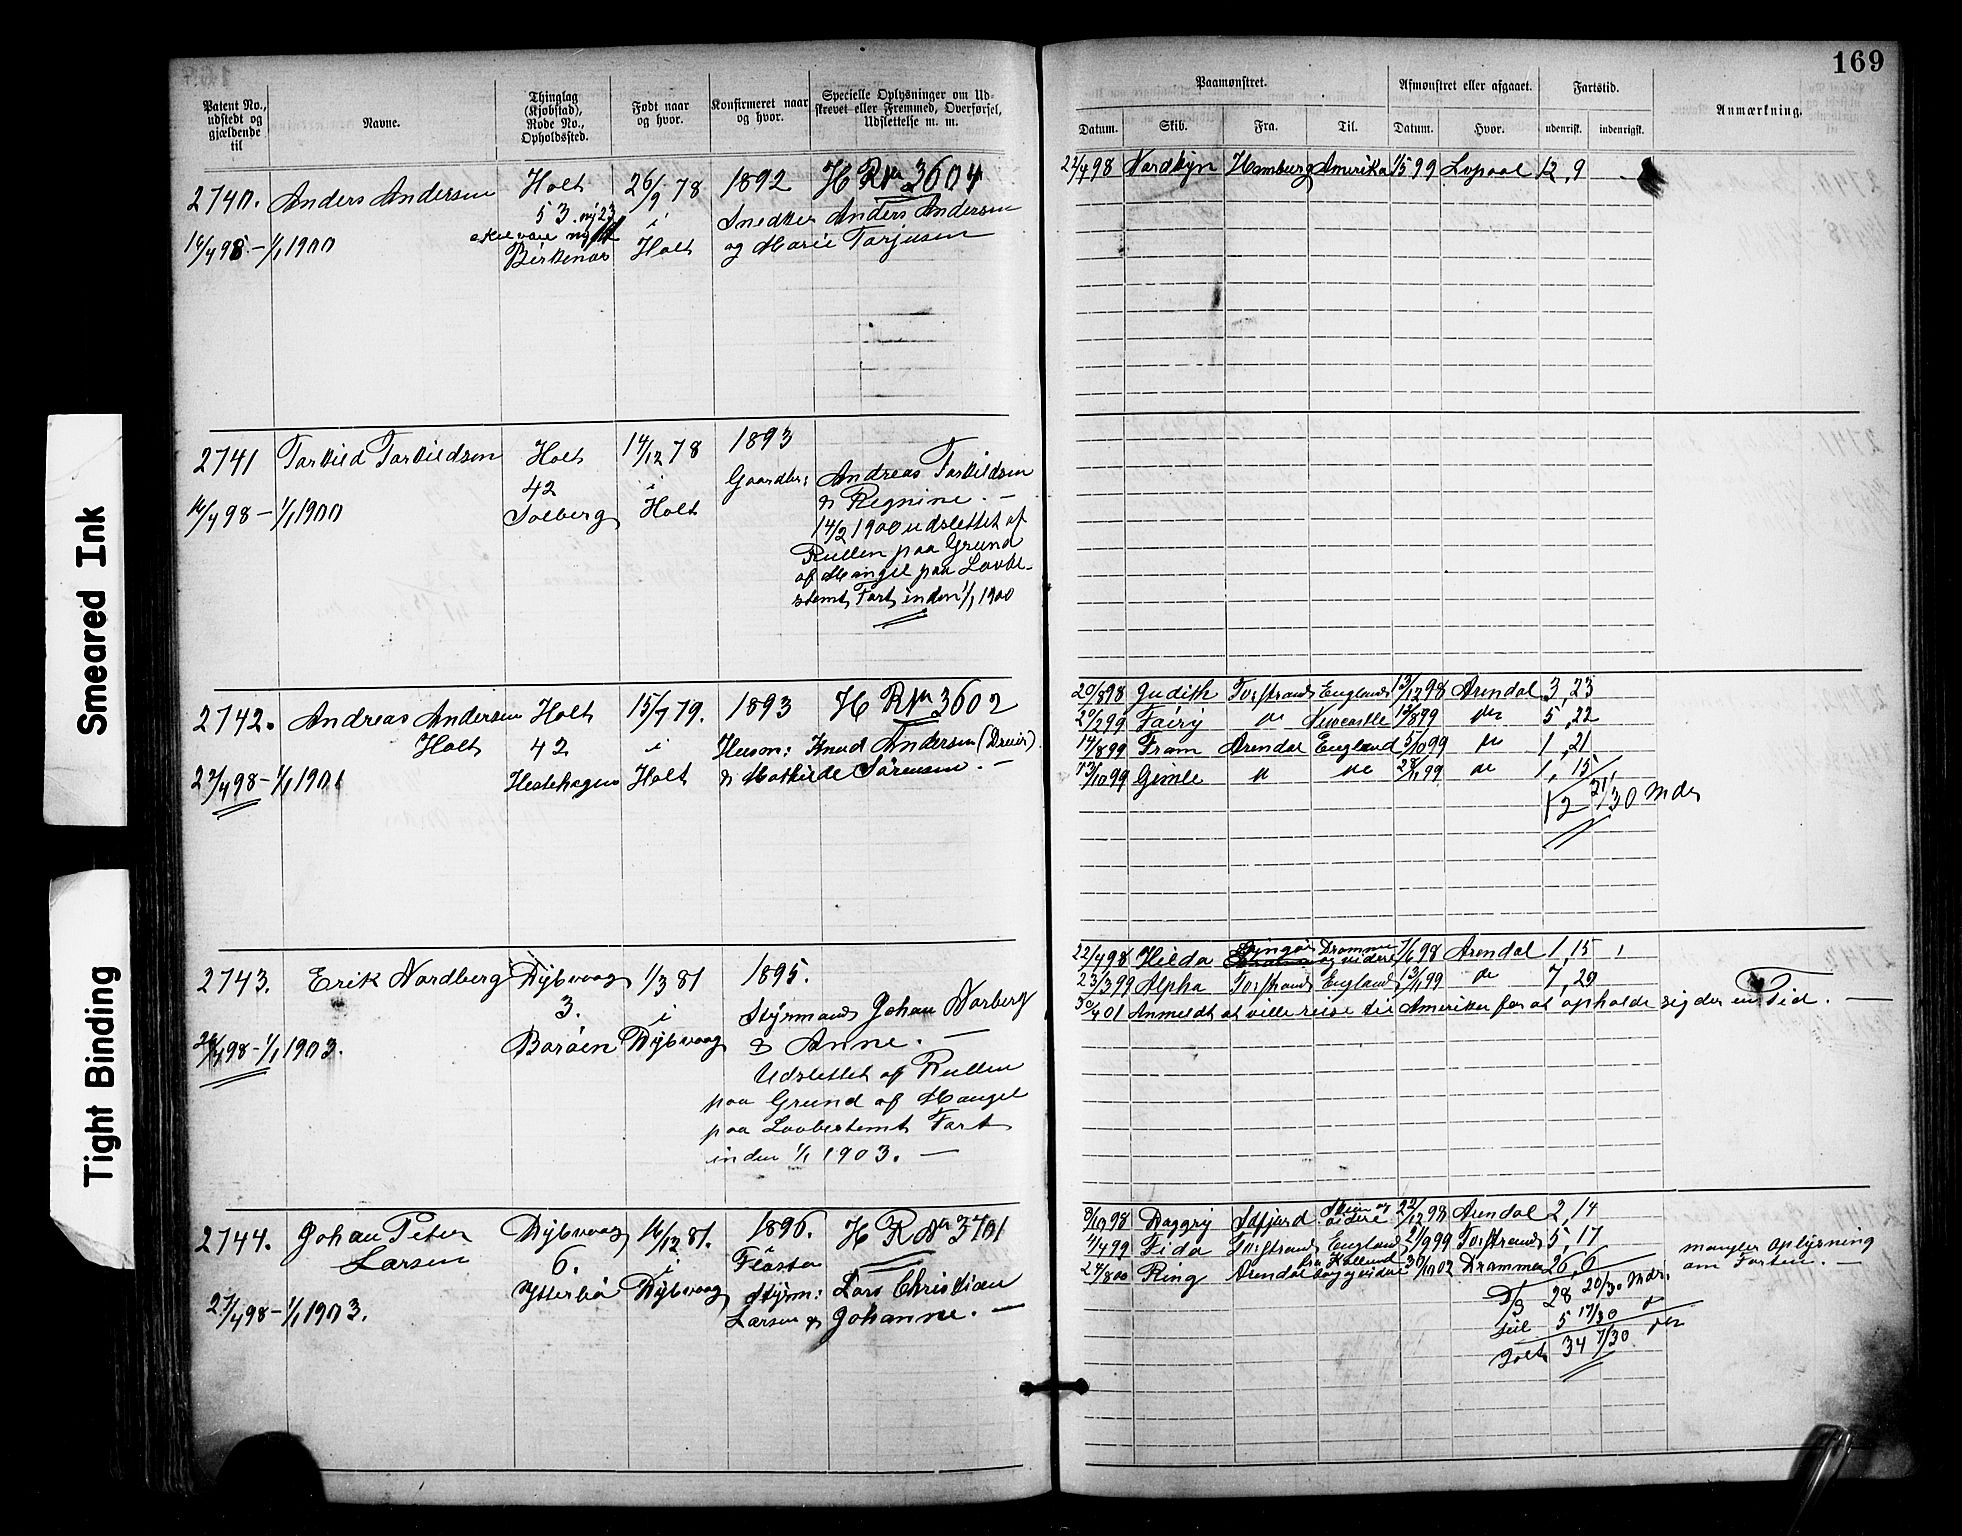 169
Smeared Ink
Tight Binding
Patent No., udstedt og gjældende til
Navne.
Thinglag (Kjøbstad), Rode No., Opholdssted.
Født naar og hvor.
Konfirmeret naar og hvor.
Specielle Oplysninger om Udskrevet eller Fremmed, Overførsel, Udslettelse m. m.
Paamønstret.
Afmønstret eller afgaaet.
Fartstid.
Anmærkning.
Datum. Skib. Fra. Til. Datum. Hvor. udenrigsk. indenrigsk.
2740. Anders Andersen Holt 26/9 78 1892 H R No 3604
53. ny 23 i Snedker Anders Andersen
Birkenes Holt og Marie Tarjusen
16/4 98 - 1/1 1900
22/4 98 Nordkyn Hamburg Amerika 1/5 99 Lvpool 12, 9
2741 Tarkild Tarkildsen Holt 14/12 78 1893
42 i Gaardbr: Andreas Tarkildsen
16/4 98 - 1/1 1900 Solberg Holt & Regnine. -
14/2 1900 udslettet af
Rullen paa Grund
af Mangel paa Lovbe-
stemt Fart inden 1/1 1900
2742. Andreas Andersen Holt 15/7 79. 1893 H R No 3602
Holt 42 i Husm: Knud Andersen (Dreier)
22/4 98 - 1/1 1901 Hestehagen Holt & Mathilde Sørensen. -
20/8 98 Judith Tvestrand England 13/12 98 Arendal 3, 23
20/2 99 Fairy do Newcastle 12/8 99 do 5, 22
14/8 99 Fram Arendal England 5/10 99 do 1, 21
13/10 99 Gimle do do 28/11 99 do 1, 15
12 21/30 Mdr
2743. Erik Nordberg Dybvaag 1/3 81 1895.
3. i Styrmand Johan Norberg
98 - 1/1 1903. Borøen Dybvaag & Anne. -
Udslettet af Rullen
paa Grund af Mangel
paa Lovbestemt Fart
inden 1/1 1903. -
22/4 98 Hilda Dramm og videre 7/6 98 Arendal 1, 15
23/3 99 Alpha Tvestrand England 99 do 7, 20
30/4 01 Anmeldt at ville reise til Amerika for at opholde sig der en Tid. -
2744. Johan Peter Larsen Dybvaag 16/12 81. 1896. H R No 3701
6. i Flosta
27/4 98 - 1/1 1903. Ytterbø Dybvaag Styrm: Lars Christian
Larsen & Johanne. -
8/10 98 Daggry Skien og videre 22/12 98 Arendal 2, 14
11/4 99 Fida Tvestrand England 27/9 99 Tvestrand 5, 17
24/8 00 Ring Arendal 30/10 02 Drammen 26, 6
Mangler Oplysning
om Farten. -
D/S 28 20/30 Mdr.
Seil 5 17/30 do
34 7/30 do